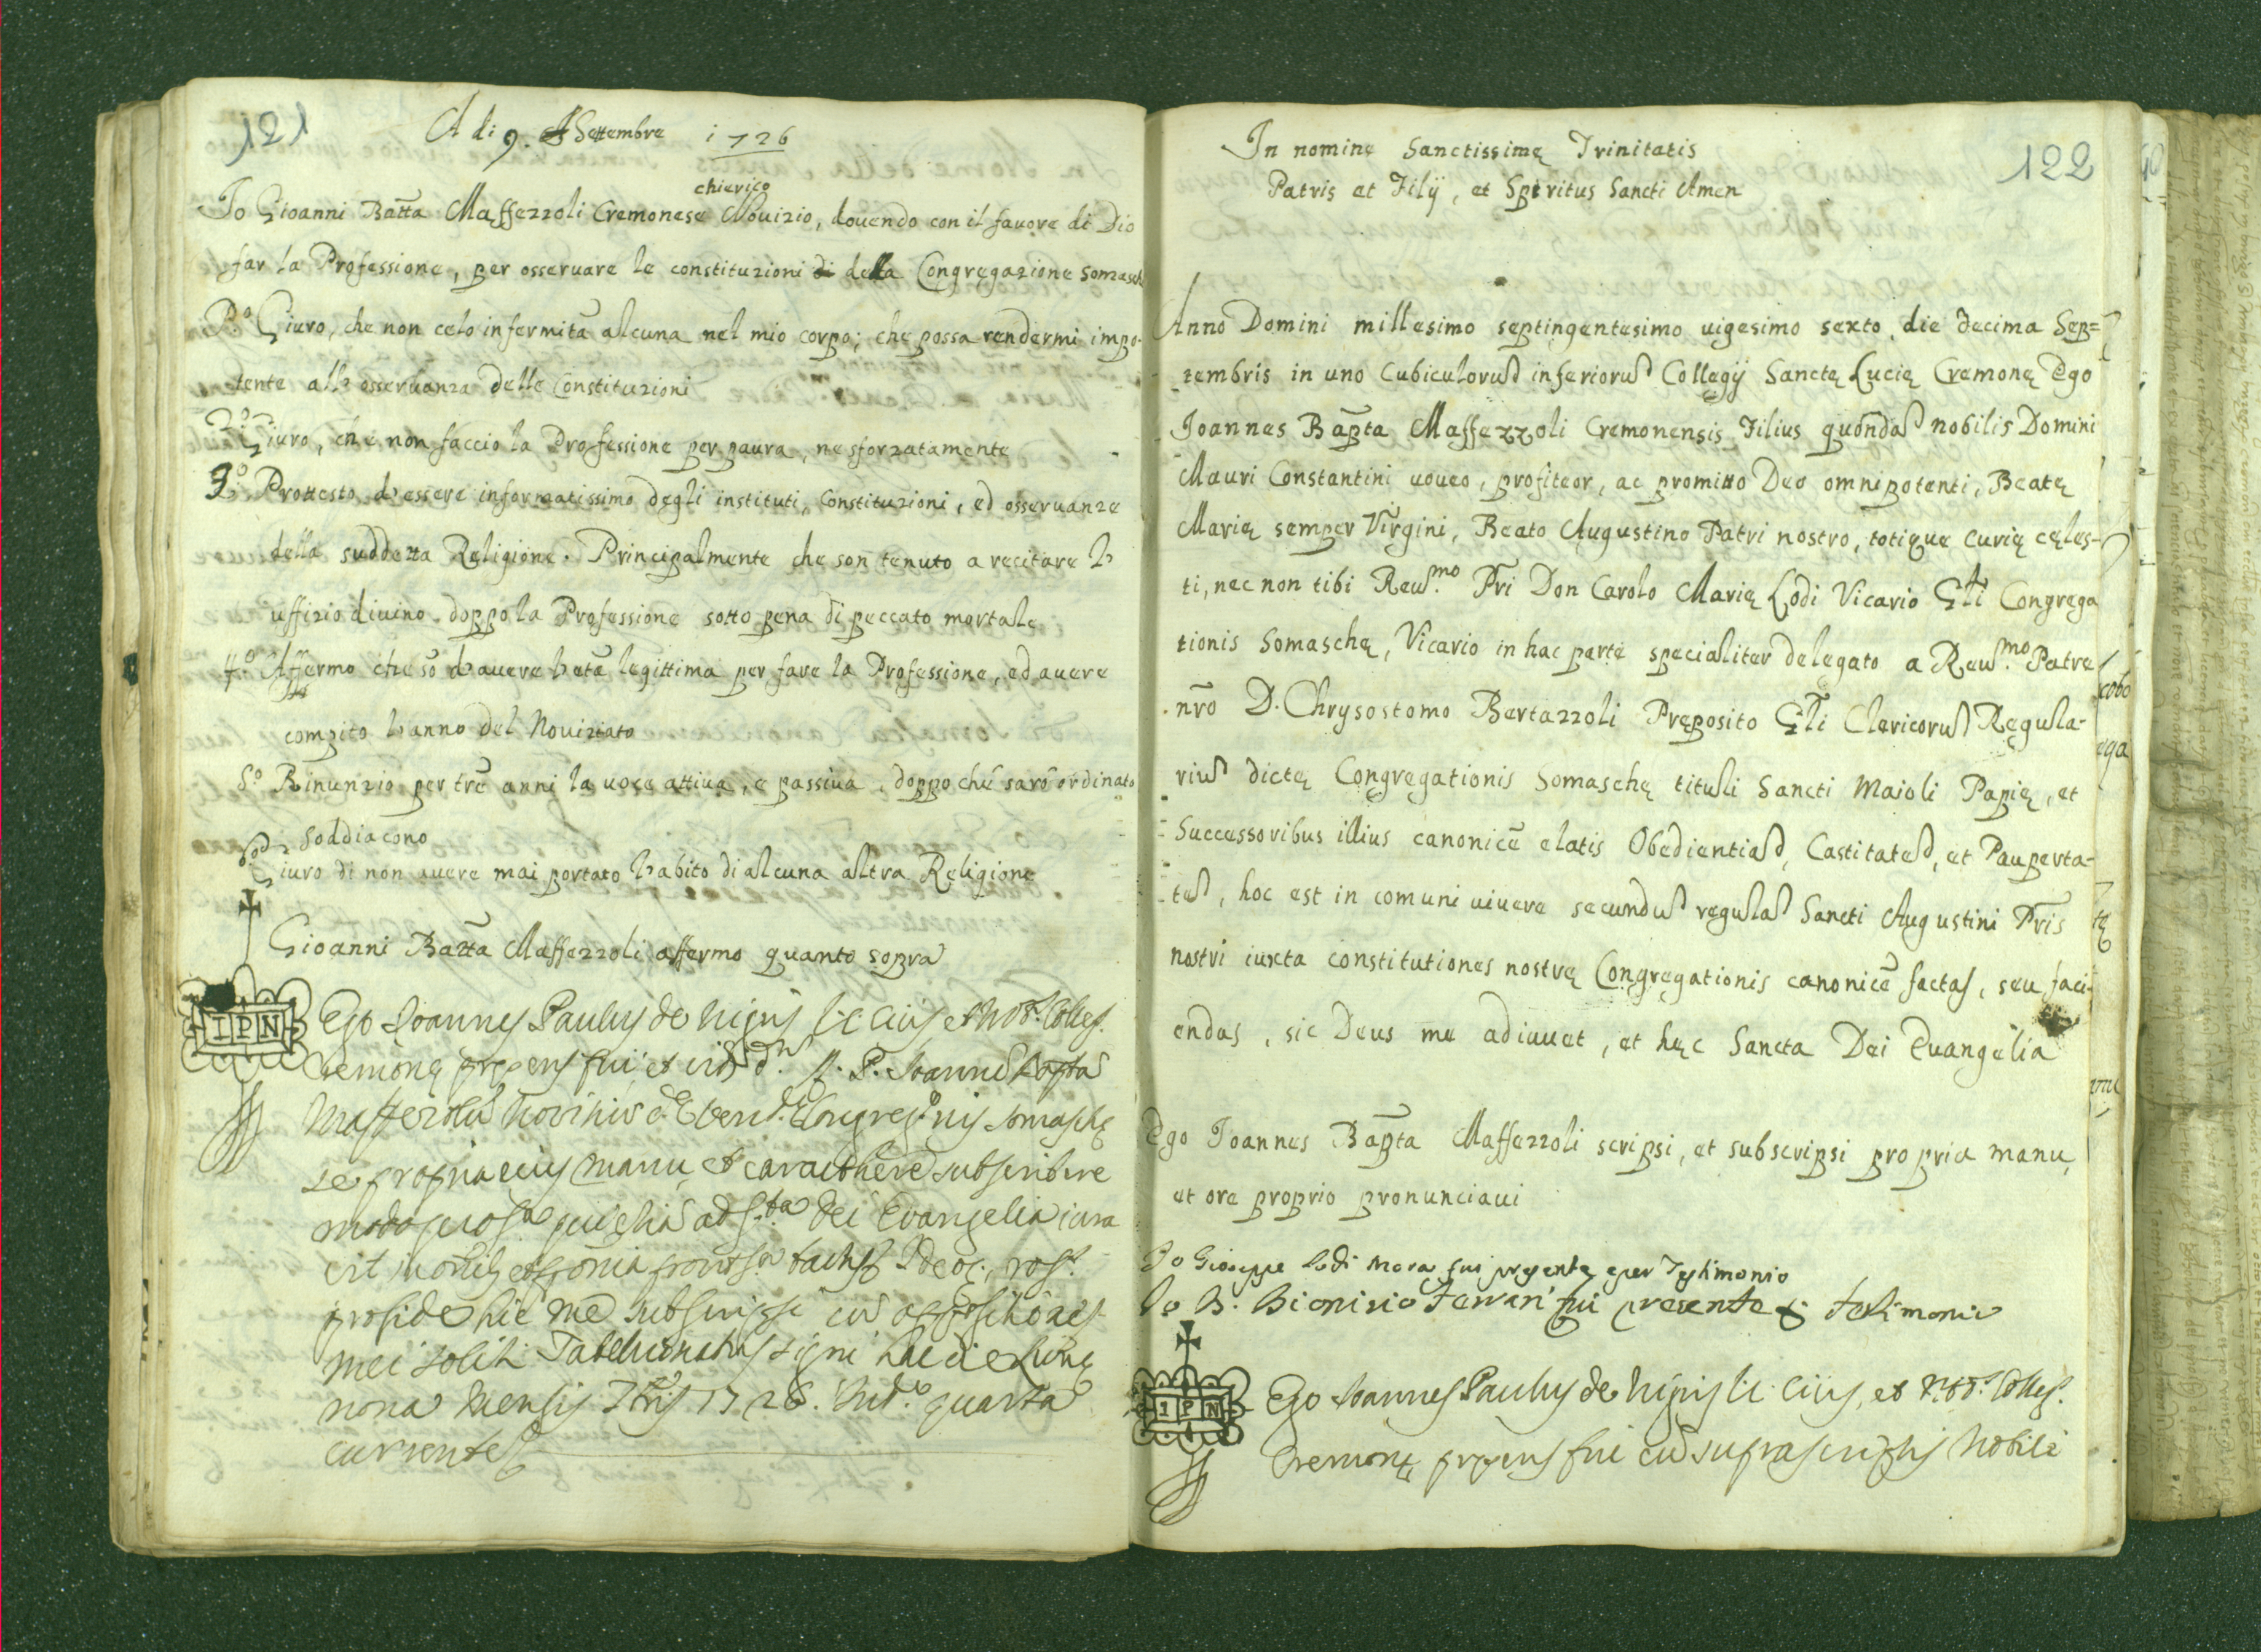 121
A di 9. Settembre 1726
chierico
Io Gioanni Batta Maffezzoli Cremonese Novizio, dovendo con il favore di Dio
far la Professione, per osservare le constituzioni di della Congregazione Somasch
Pº Giuro, che non celo infermità alcuna nel mio corpo; che possa rendermi impo-
tente all osservanza delle Constituzioni
2º Giuro, che non faccio la Professione per paura, ne sforzatamente
3º Protesto d'essere informatissimo degli instituti, Constituzioni, ed osservanze
della suddetta Religione. Principalmente che son tenuto a recitare l'
uffizio divino doppo la Professione sotto pena di peccato mortale
4º Affermo che só d'avere l'età legittima per fare la Professione, ed avere
compito l'anno del Noviziato
5º Rinunzio per tré anni la voce attiva, e passiva, doppo ché saró ordinato
Soddiacono
6º Giuro di non avere mai portato l'abito di alcuna altra Religione
Gioanni Batta Maffezzoli affermo quanto sopra
IPN
Ego Joannes Paulus de Nigris
Cremonę pręsens fui, et
se propria eius manu, et caracthere subscribere
modo ad Dei Evangelia iura
hic me subscripsi
mei soliti Tabellionatus signi hac die Lunę
nona mensis 7bris 1726. Ind.e quarta
currente
122
In nominę Sanctissimę Trinitatis
Patris et Filÿ, et Spiritus Sancti Amen
Anno Domini millesimo septingentesimo vigesimo sexto die decima Sep=
tembris in uno Cubiculorum inferiorum Collegÿ Sanctę Lucię Cremonę Ego
Joannes Bapta Maffezzoli Cremonensis Filius quondam nobilis Domini
Mauri Constantini voveo, profiteor, ac promitto Deo omnipotenti, Beatę
Marię semper Virgini, Beato Augustino Patri nostro, totique curię cęles-
ti, nec non tibi Reu.mo Pri Don Carolo Marię Lodi Vicario Gli Congrega
tionis Somaschę, Vicario in hac parte specialiter delegato a Reu.mo Patre
nro D. Chrysostomo Bertazzoli Preposito Gli Clericorum Regula-
rium dictę Congregationis Somaschę tituli Sancti Maioli Papię, et
Successoribus illius canonicè elatis Obedientiam, Castitatem, et Pauperta-
tem, hoc est in comuni vivere secundum regulam Sancti Augustini Pris
nostri iuxta constitutiones nostrę Congregationis canonicè factas, seu faci-
endas, sic Deus me adiuvet, et hęc Sancta Dei Evangelia
Ego Joannes Bapta Maffezzoli scripsi, et subscripsi propria manu,
et ore proprio pronunciavi
Io Gioseppe Lodi Mora fui presente per Testimonio
Io B. Bionisio Ferrari fui presente testimonio
IPN
Ego Joannes Paulus de Nigris
Cremonę pręsens fui cum suprascriptis Nobili